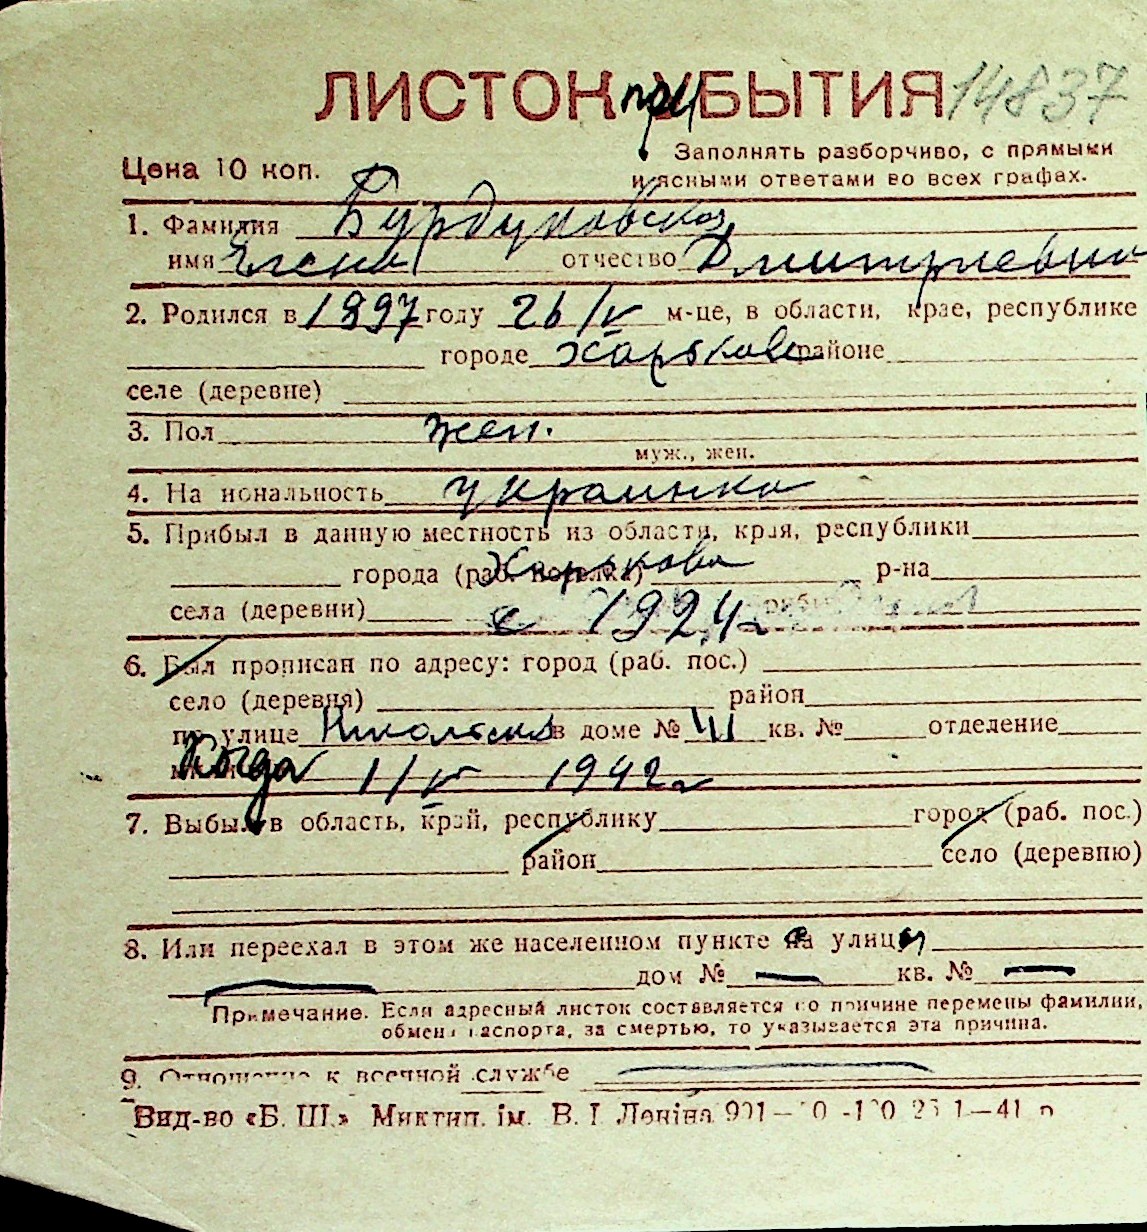 ЛИСТОК при УБЫТИЯ 14837
Цена 10 коп.
Заполнять разборчиво, с прямыми
и ясными ответами во всех графах.
1. Фамилия Бурдуковская
имя Елена отчество Дмитриевна
2. Родился в 1897 году 26/IV м-це, в области, крае, республике
городе Харькове районе
селе (деревне)
3. Пол жен.
муж., жен.
4. Национальность украинка
5. Прибыл в данную местность из области, края, республики
города (раб. поселка) Харькова р-на
села (деревни) с 1924 г
6. Был прописан по адресу: город (раб. пос.)
село (деревня) район
по улице в доме № кв. № отделение
Когда 1/IV 1942 г
7. Выбыл в область, край, республику город (раб. пос.)
район село (деревню)
8. Или переехал в этом же населенном пункте на улицу
— дом № — кв. № —
Примечание. Если адресный листок составляется по причине перемены фамилии,
обмена паспорта, за смертью, то указывается эта причина.
9. Отношение к военной службе —
Вид-во «Б. Ш.» Миктип. ім. В. І Леніна